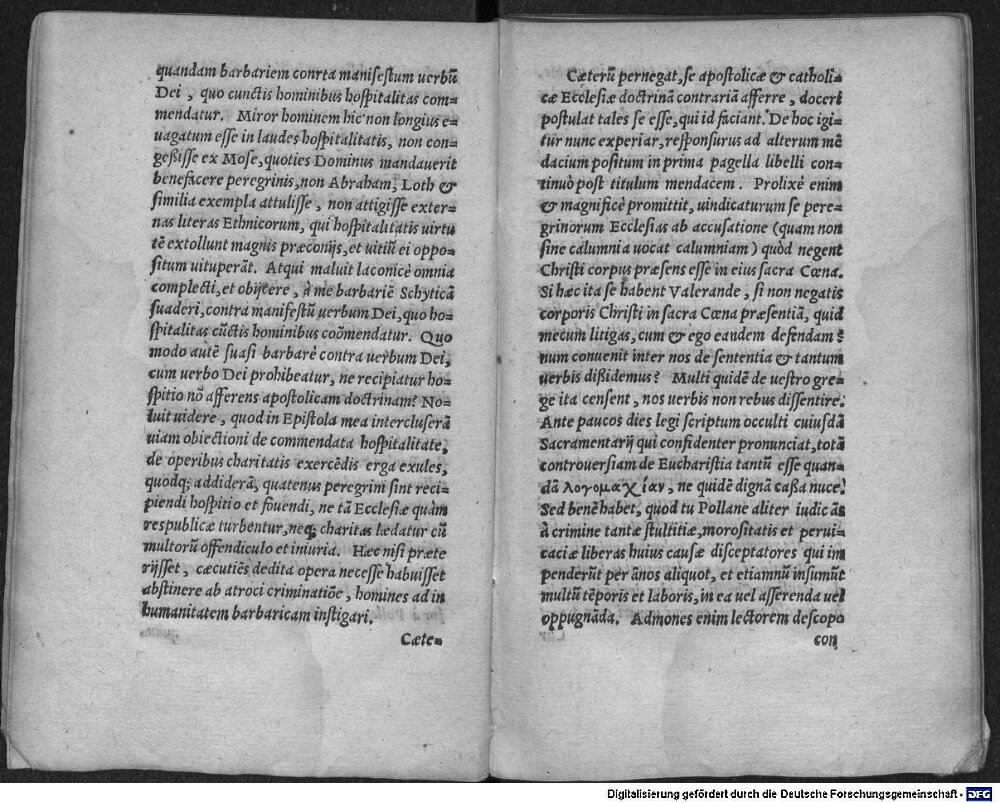 quandam barbariem conrta manifestum uerbū
Dei, quo cunctis hominibus hospitalitas com=
mendatur. Miror hominem hic non longius e=
uagatum esse in laudes hospitalitatis, non con=
gessisse ex Mose, quoties Dominus mandauerit
benefacere peregrinis, non Abraham, Loth &
similia exempla attulisse, non attigisse exter=
nas literas Ethnicorum, qui hospitalitatis uirtu
tē extollunt magnis præconijs, et uitiū ei oppo=
situm uituperāt. Atqui maluit laconicè omnia
complecti, et obijcere, à me barbariē Schyticā
suaderi, contra manifestū uerbum Dei, quo ho=
spitalitas cūctis hominibus coōmendatur. Quo
modo autē suasi barbarè contra uerbum Dei,
cum uerbo Dei prohibeatur, ne recipiatur ho=
spitio nō afferens apostolicam doctrinam? No=
luit uidere, quod in Epistola mea intercluserā
uiam obiectioni de commendata hospitalitate,
de operibus charitatis exercēdis erga exules,
quodq; addiderā, quatenus peregrini sint reci=
piendi hospitio et fouendi, ne tā Ecclesiæ quàm
respublicæ turbentur, neq; charitas lædatur cū
multorū offendiculo et iniuria. Hæc nisi præte
rijsset, cæcutiēs dedita opera necesse habuisset
abstinere ab atroci criminatiōe, homines ad in
humanitatem barbaricam instigari.
Cæte=
Cæterū pernegat, se apostolicæ & catholi=
cæ Ecclesiæ doctrinā contrariā afferre, doceri
postulat tales se esse, qui id faciant. De hoc igi=
tur nunc experiar, responsurus ad alterum mē
dacium positum in prima pagella libelli con=
tinuò post titulum mendacem. Prolixè enim
& magnificè promittit, uindicaturum se pere=
grinorum Ecclesias ab accusatione (quam non
sine calumnia uocat calumniam) quòd negent
Christi corpus præsens esse in eius sacra Cœna.
Si hæc ita se habent Valerande, si non negatis
corporis Christi in sacra Cœna præsentiā, quid
mecum litigas, cum & ego eandem defendam?
num conuenit inter nos de sententia & tantum
uerbis dissidemus? Multi quidē de uestro gre=
ge ita censent, nos uerbis non rebus dissentire.
Ante paucos dies legi scriptum occulti cuiusdā
Sacramentarij qui confidenter pronunciat, totā
controuersiam de Eucharistia tantū esse quan=
dā λογομαχίαν, ne quidē dignā cassa nuce.
Sed benè habet, quod tu Pollane aliter iudicās
à crimine tantæ stultitiæ, morositatis et perui=
caciæ liberas huius causæ disceptatores qui im
penderūt per ānos aliquot, et etiamnū insumūt
multū tēporis et laboris, in ea uel asserenda uel
oppugnāda. Admones enim lectorem de scopo
con
Digitalisierung gefördert durch die Deutsche Forschungsgemeinschaft - DFG